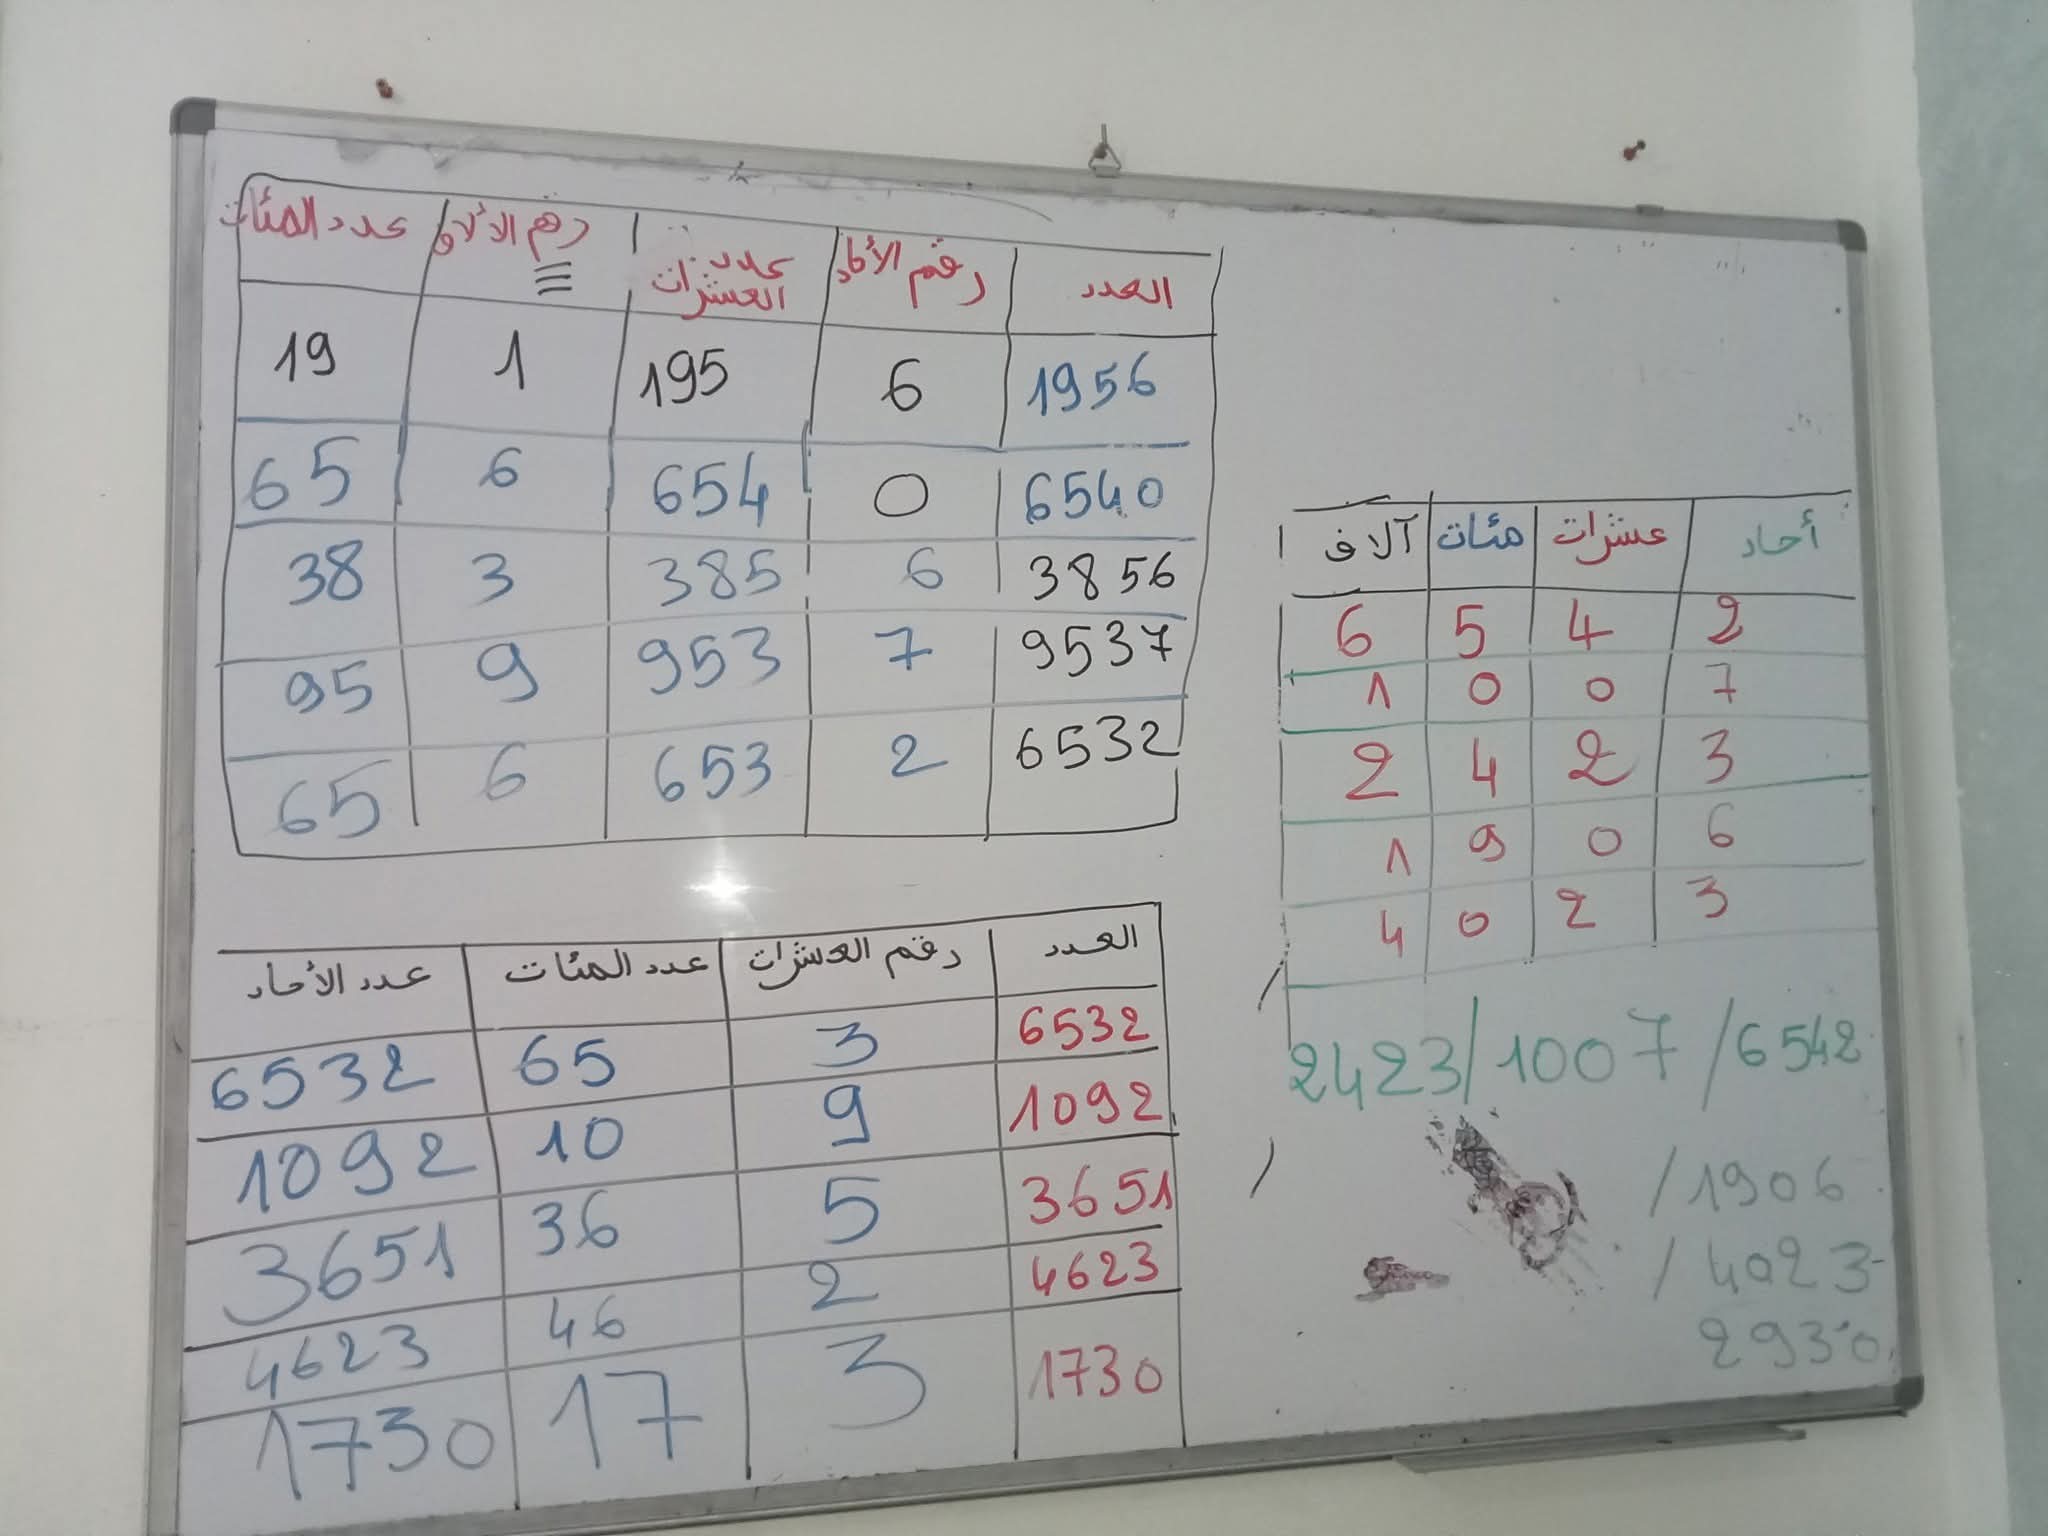 العدد رقم الأحاد عدد العشرات رقم الألاف عدد المئات
1956 6 195 1 19
6540 0 654 6 65
3856 6 385 3 38
9537 7 953 9 95
6532 2 653 6 65
أحاد عشرات مئات آلاف
2 4 5 6
7 0 0 1
3 2 4 2
6 0 9 1
3 2 0 4
2423/1007/6542
/1906
/4023
2930
العدد رقم العشرات عدد المئات عدد الأحاد
6532 3 65 6532
1092 9 10 1092
3651 5 36 3651
4623 2 46 4623
1730 3 17 1730